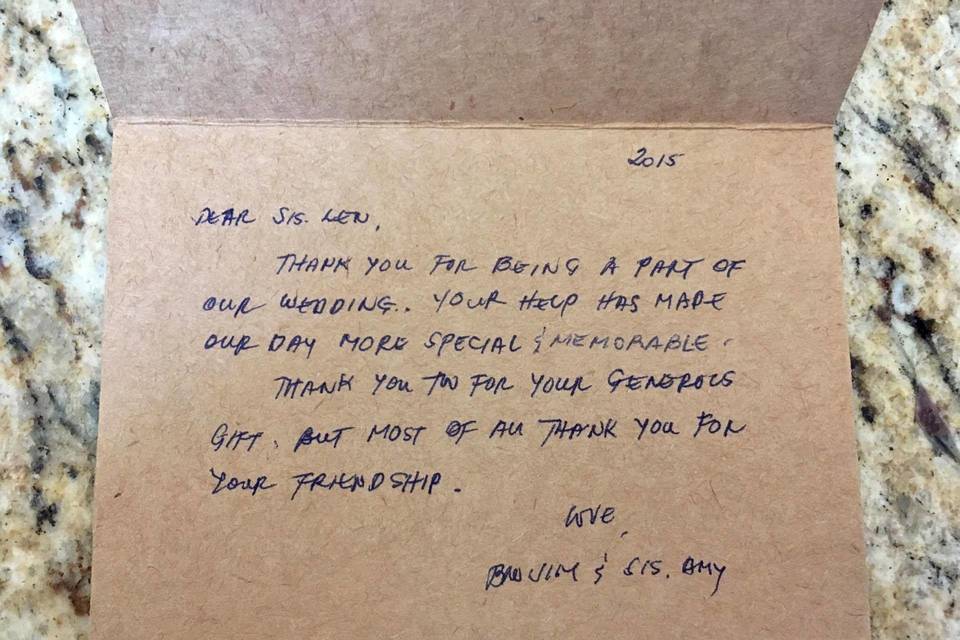 2015
DEAR SIS. LEN,
THANK YOU FOR BEING A PART OF
OUR WEDDING.. YOUR HELP HAS MADE
OUR DAY MORE SPECIAL & MEMORABLE.
THANK YOU TOO FOR YOUR GENEROUS
GIFT. BUT MOST OF ALL THANK YOU FOR
YOUR FRIENDSHIP.
LOVE,
& SIS. AMY